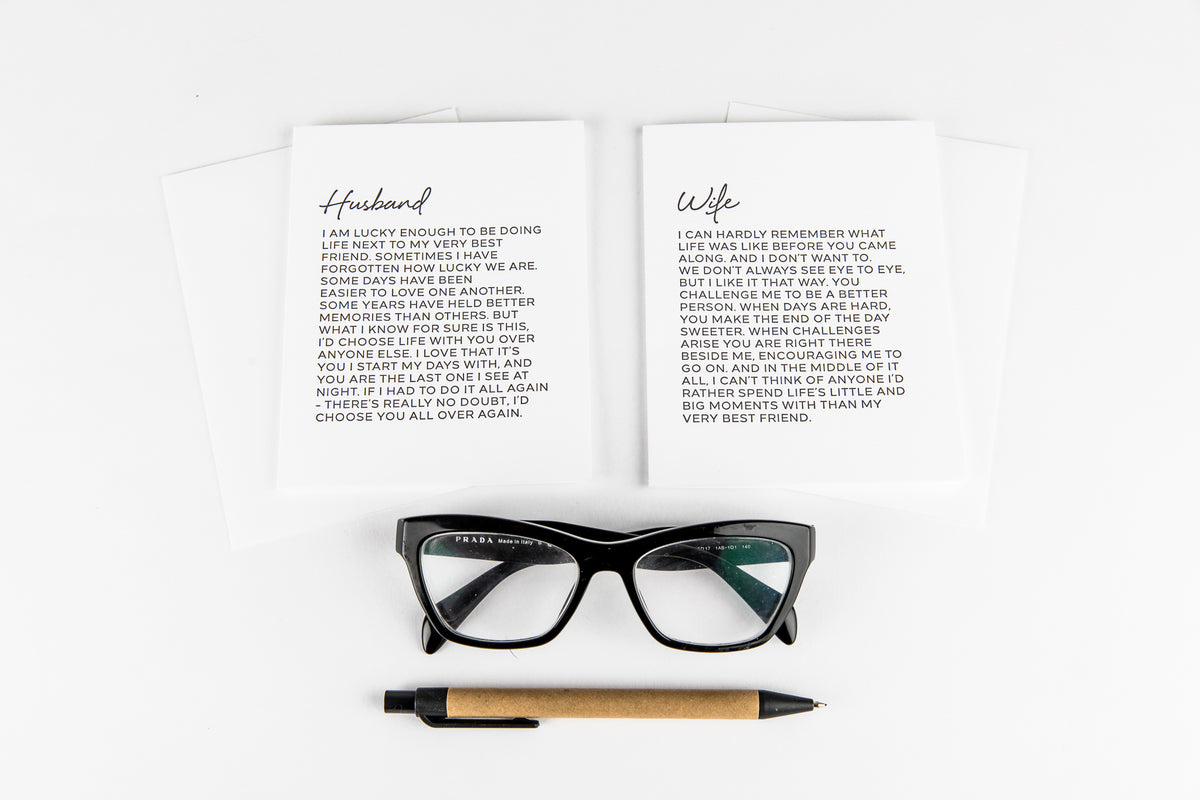 Husband
I AM LUCKY ENOUGH TO BE DOING
LIFE NEXT TO MY VERY BEST
FRIEND. SOMETIMES I HAVE
FORGOTTEN HOW LUCKY WE ARE.
SOME DAYS HAVE BEEN
EASIER TO LOVE ONE ANOTHER.
SOME YEARS HAVE HELD BETTER
MEMORIES THAN OTHERS. BUT
WHAT I KNOW FOR SURE IS THIS,
I'D CHOOSE LIFE WITH YOU OVER
ANYONE ELSE. I LOVE THAT IT'S
YOU I START MY DAYS WITH, AND
YOU ARE THE LAST ONE I SEE AT
NIGHT. IF I HAD TO DO IT ALL AGAIN
- THERE'S REALLY NO DOUBT, I'D
CHOOSE YOU ALL OVER AGAIN.
Wife
I CAN HARDLY REMEMBER WHAT
LIFE WAS LIKE BEFORE YOU CAME
ALONG. AND I DON'T WANT TO.
WE DON'T ALWAYS SEE EYE TO EYE,
BUT I LIKE IT THAT WAY. YOU
CHALLENGE ME TO BE A BETTER
PERSON. WHEN DAYS ARE HARD,
YOU MAKE THE END OF THE DAY
SWEETER. WHEN CHALLENGES
ARISE YOU ARE RIGHT THERE
BESIDE ME, ENCOURAGING ME TO
GO ON. AND IN THE MIDDLE OF IT
ALL, I CAN'T THINK OF ANYONE I'D
RATHER SPEND LIFE'S LITTLE AND
BIG MOMENTS WITH THAN MY
VERY BEST FRIEND.
PRADA Made in Italy
1AB-1O1 140